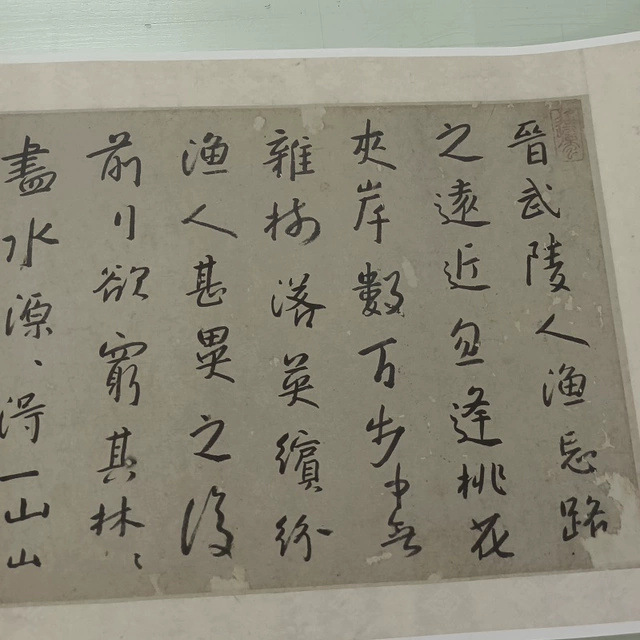 晉武陵人漁忘路
之遠近忽逢桃花
夾岸數百步中無
雜樹落英繽紛
漁人甚異之復
前行欲窮其林〻
盡水源〻得一山山